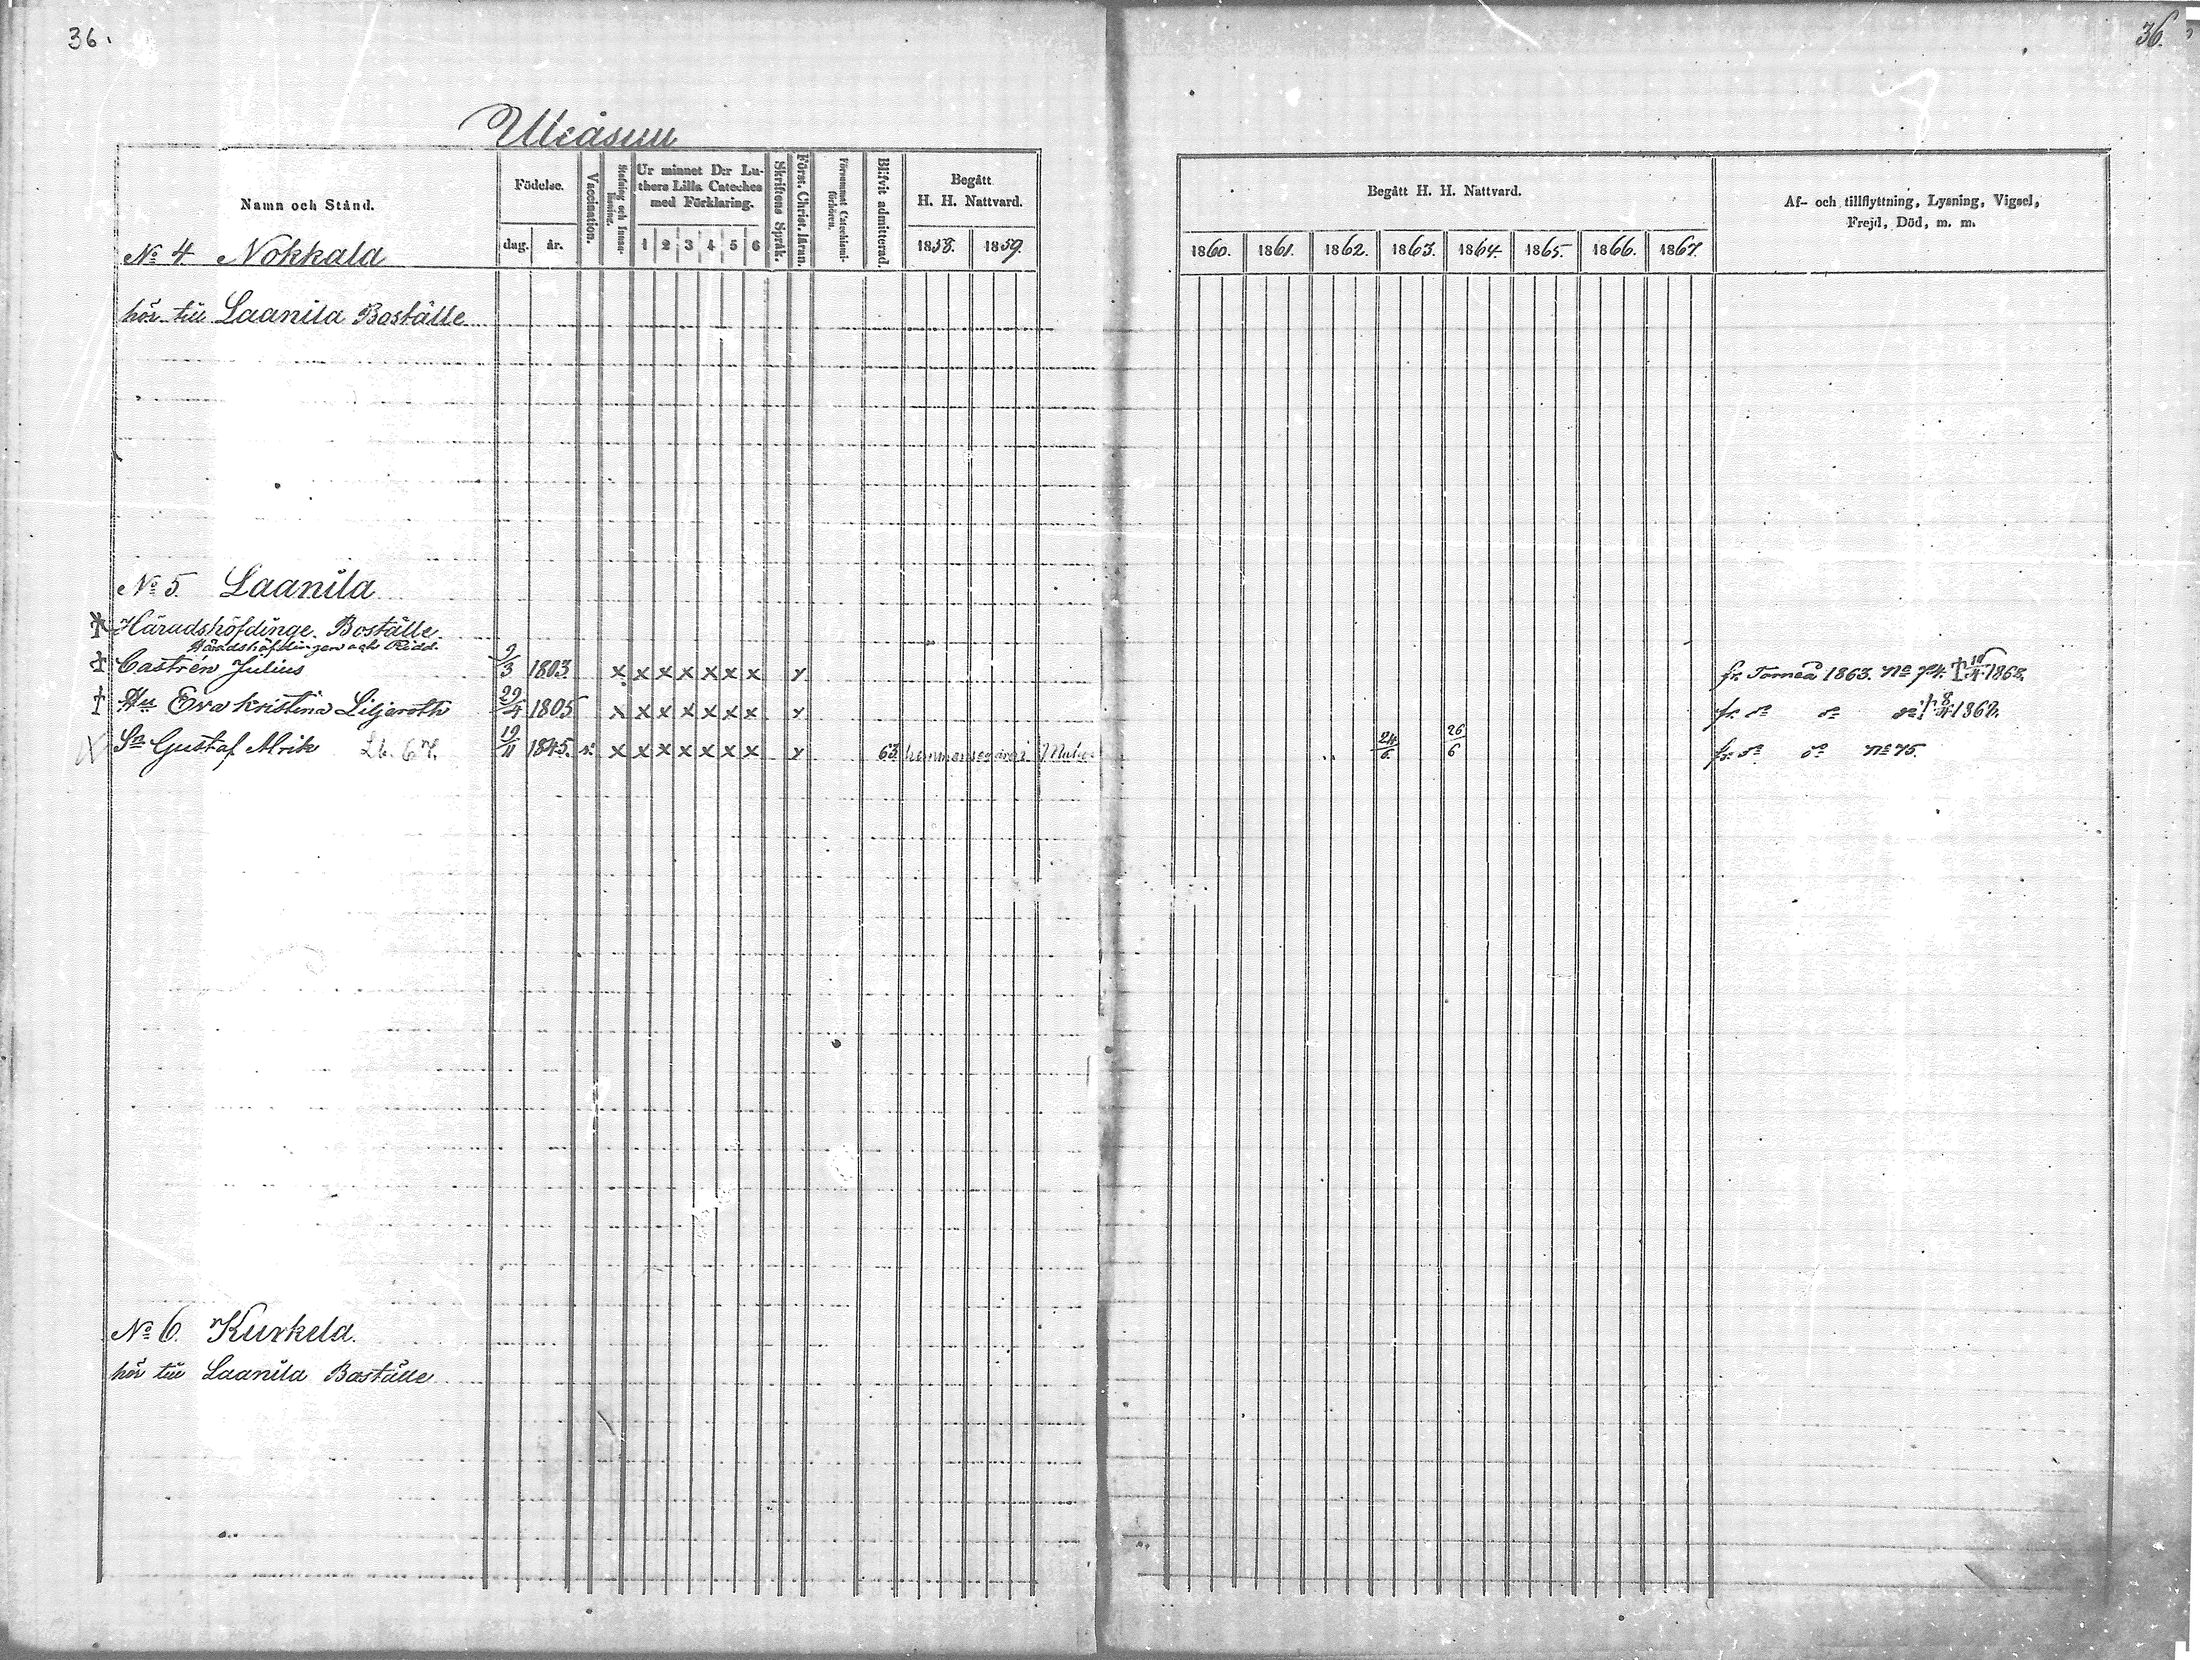 36.
36.
Uleåsuu
Namn och Stånd.
Födelse.
dag. år.
Vaccination.
Stafning och Innan-läsning.
Ur minnet D:r Lu-
thers Lilla Cateches
med Förklaring.
1 2 3 4 5 6
Skriftens Språk.
Först. Christ. läran.
Försummat Catechismi-förhören.
Blifvit admitterad.
Begått
H. H. Nattvard.
1858. 1859.
Begått H. H. Nattvard.
1860. 1861. 1862. 1863. 1864. 1865. 1866. 1867.
Af- och tillflyttning, Lysning, Vigsel,
Frejd, Död, m. m.
No 4 Nokkala
hör till Laanila Boställe
No 5. Laanila
Häradshöfdinge Boställe.
Häradshöfdingen och Ridd.
† Castrén Julius 9/3 1803. x x x x x x x y fr. Torneå 1863. No 74. † 1863.
† Hu Eva Kristina Liljeroth 29/4 1805 x x x x x x x y fr. do do do †
Sn Gustaf Alrik Lb. 67. 19/11 1845. v. x x x x x x x y 63 24/6 26/6 fr. do do No 75.
No 6 Kurkela.
hör till Laanila Boställe